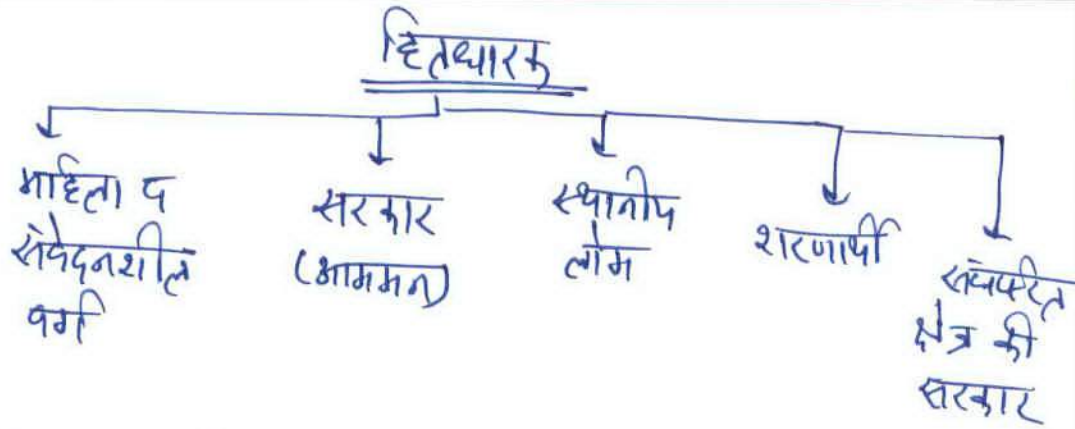 हितधारक
महिला व
संवेदनशील
वर्ग
सरकार
(आगमन)
स्थानीय
लोग
शरणार्थी
संघर्षरत
क्षेत्र की
सरकार